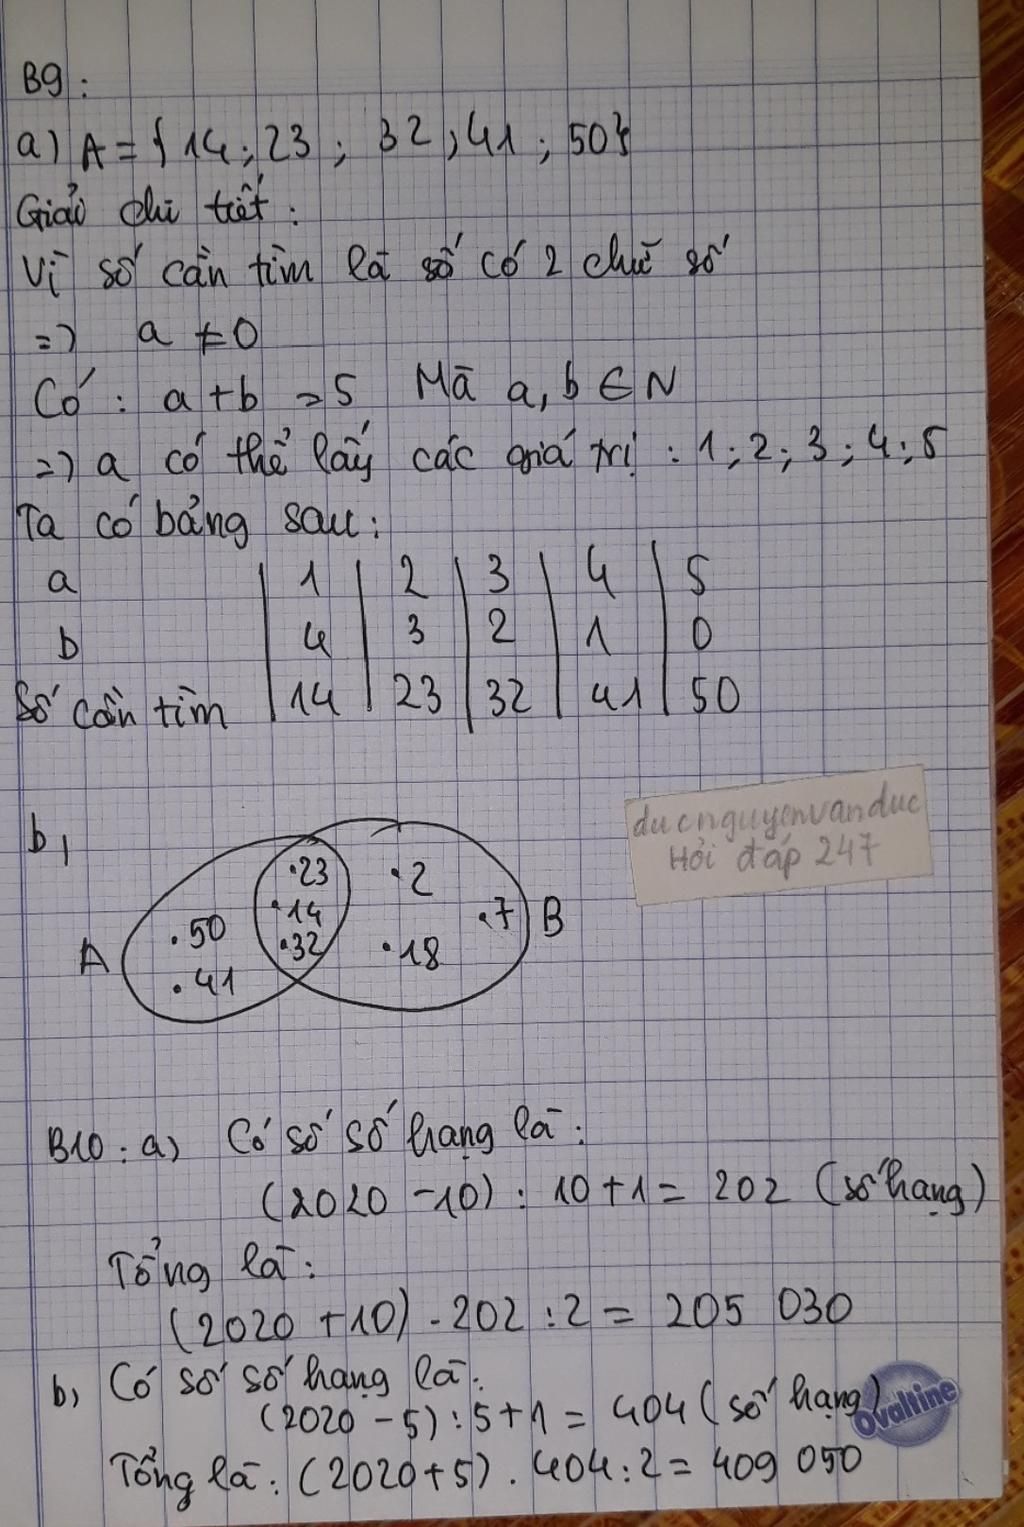 B9:
a) A = { 14; 23; 32; 41; 50}
Giải chi tiết:
Vì số cần tìm là số có 2 chữ số
=> a ≠ 0
Có: a + b = 5 Mà a, b ∈ N
=> a có thể lấy các giá trị: 1; 2; 3; 4; 5
Ta có bảng sau:
a | 1 | 2 | 3 | 4 | 5
b | 4 | 3 | 2 | 1 | 0
Số cần tìm | 14 | 23 | 32 | 41 | 50
ducnguyenvanduc
Hỏi đáp 247
b,
.23
.2
.14
.7
B
.50
A
.32
.18
.41
B10: a) Có số số hạng là:
(2020 - 10) : 10 + 1 = 202 (số hạng)
Tổng là:
(2020 + 10) . 202 : 2 = 205 030
b, Có số số hạng là:
(2020 - 5) : 5 + 1 = 404 (số hạng)
Ovaltine
Tổng là: (2020 + 5) . 404 : 2 = 409 050